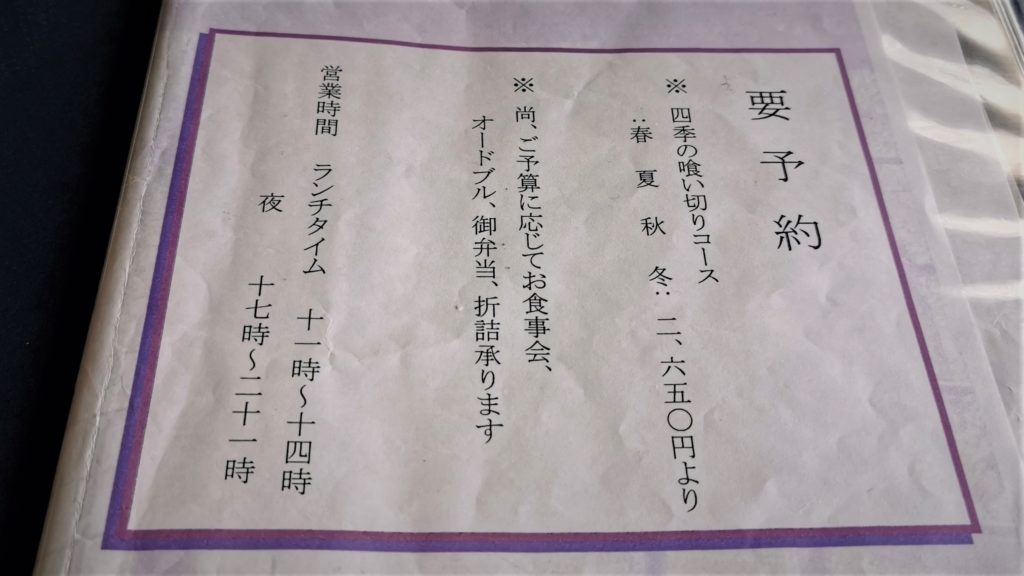 要予約
※ 四季の喰い切りコース
：春 夏 秋 冬： 二、六五〇円より
※ 尚、ご予算に応じてお食事会、
オードブル、御弁当、折詰承ります
営業時間 ランチタイム 十一時～十四時
夜 十七時～二十一時